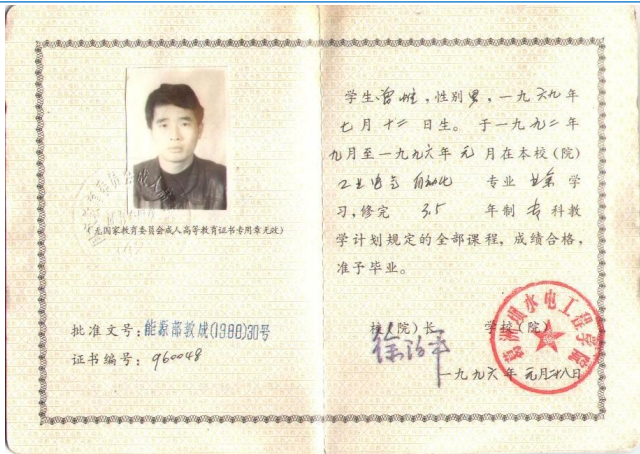 (无国家教育委员会成人高等教育证书专用章无效)
批准文号:能源部教成(1988)30号
证书编号:960048
学生曾 ,性别男,一九六九年
七月十二日生。于一九九二年
九月至一九九六年元月在本校(院)
工业电气自动化 专业 业余 学
习,修完 3.5 年制 专 科教
学计划规定的全部课程,成绩合格,
准予毕业。
校(院)长 学校(院)
葛洲坝水电工程学院
一九九六年元月廿八日